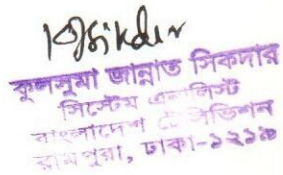 KJSikder
কুলসুমা জান্নাত সিকদার
সিস্টেম এনালিস্ট
বাংলাদেশ টেলিভিশন
রামপুরা, ঢাকা-১২১৯